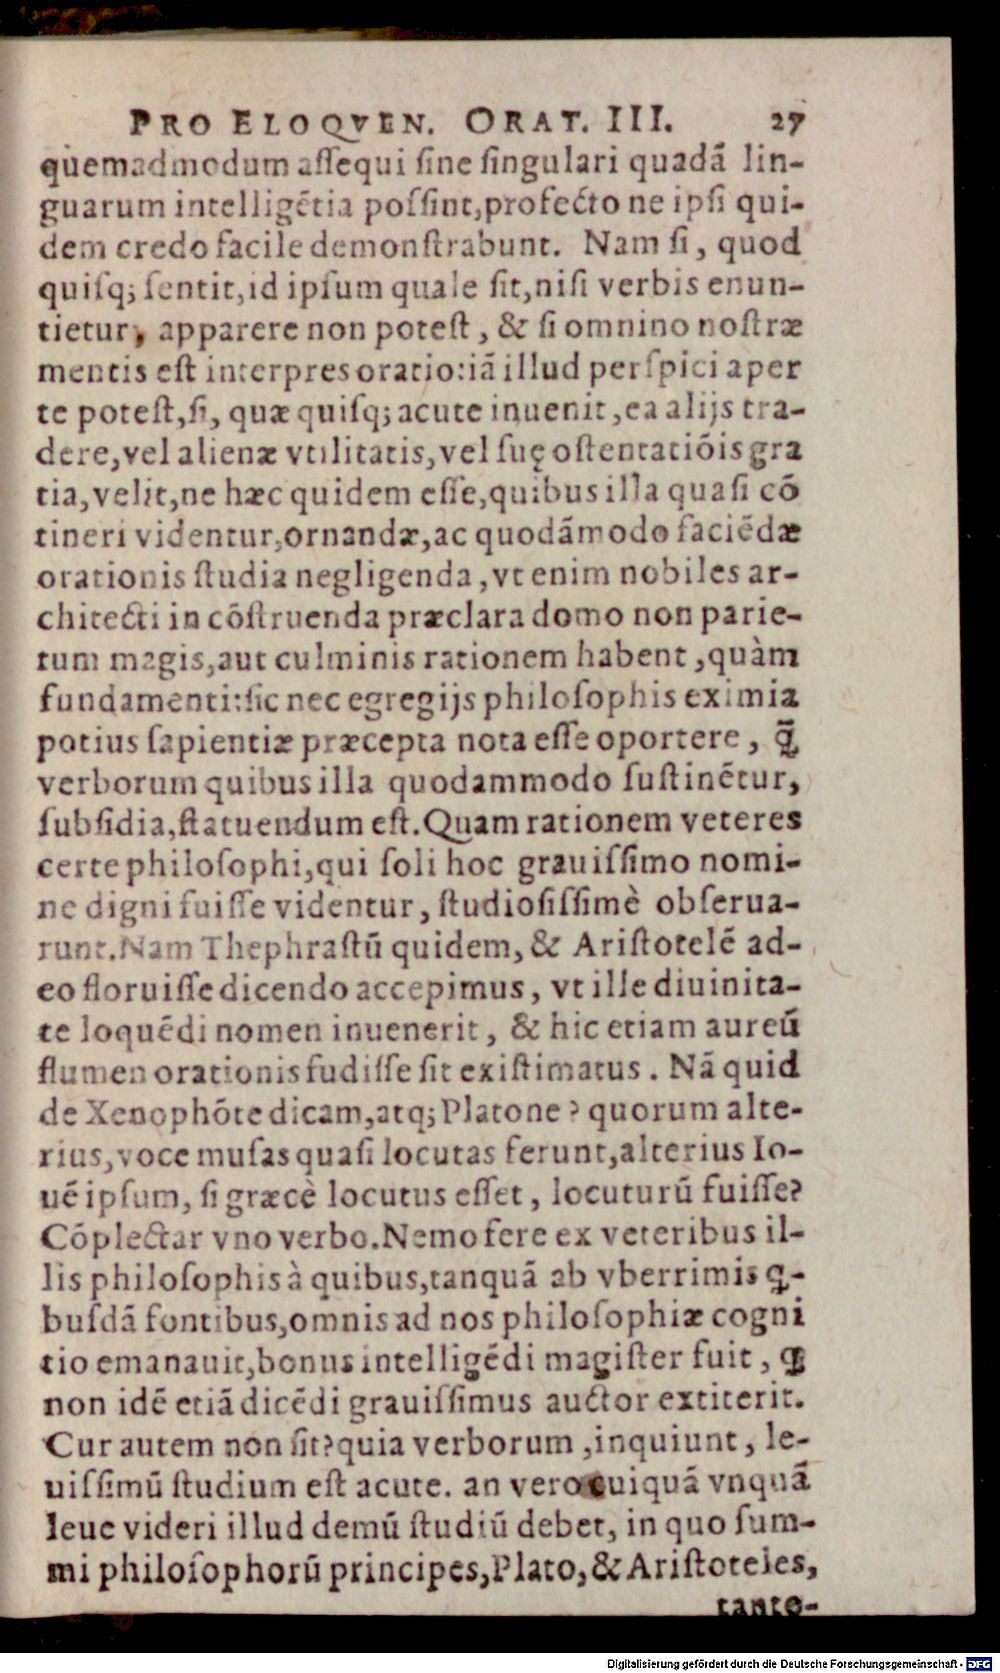 PRO ELOQVEN. ORAT. III. 27
quemadmodum aſſequi ſine ſingulari quadã lin-
guarum intelligẽtia poſſint,profecto ne ipſi qui-
dem credo facile demonſtrabunt. Nam ſi, quod
quiſq; ſentit,id ipſum quale ſit,niſi verbis enun-
tietur, apparere non poteſt, & ſi omnino noſtræ
mentis eſt interpres oratio:iã illud perſpici aper
te poteſt,ſi, quæ quiſq; acute inuenit,ea alijs tra-
dere,vel alienæ vtilitatis,vel ſuę oſtentatiõis gra
tia,velit,ne hæc quidem eſſe,quibus illa quaſi cõ
tineri videntur,ornandæ,ac quodãmodo faciẽdæ
orationis ſtudia negligenda,vt enim nobiles ar-
chitecti in cõſtruenda præclara domo non parie-
tum magis,aut culminis rationem habent,quàm
fundamenti:ſic nec egregijs philoſophis eximia
potius ſapientiæ præcepta nota eſſe oportere, ꝗ̃
verborum quibus illa quodammodo ſuſtinẽtur,
ſubſidia,ſtatuendum eſt.Quam rationem veteres
certe philoſophi,qui ſoli hoc grauiſſimo nomi-
ne digni fuiſſe videntur, ſtudioſiſſimè obſerua-
runt.Nam Thephraſtũ quidem,& Ariſtotelẽ ad-
eo floruiſſe dicendo accepimus, vt ille diuinita-
te loquẽdi nomen inuenerit, & hic etiam aureũ
flumen orationis fudiſſe ſit exiſtimatus. Nã quid
de Xenophõte dicam,atq; Platone? quorum alte-
rius,voce muſas quaſi locutas ferunt,alterius Io-
uẽ ipſum, ſi græcè locutus eſſet, locuturũ fuiſſe?
Cõplectar vno verbo.Nemo fere ex veteribus il-
lis philoſophis à quibus,tanquã ab vberrimis ꝗ-
buſdã fontibus,omnis ad nos philoſophiæ cogni
tio emanauit,bonus intelligẽdi magiſter fuit, ꝗ
non idẽ etiã dicẽdi grauiſſimus auctor extiterit.
Cur autem non ſit?quia verborum,inquiunt, le-
uiſſimũ ſtudium eſt acute. an vero cuiquã vnquã
leue videri illud demũ ſtudiũ debet, in quo ſum-
mi philoſophorũ principes,Plato,& Ariſtoteles,
tanto-
Digitalisierung gefördert durch die Deutsche Forschungsgemeinschaft - DFG